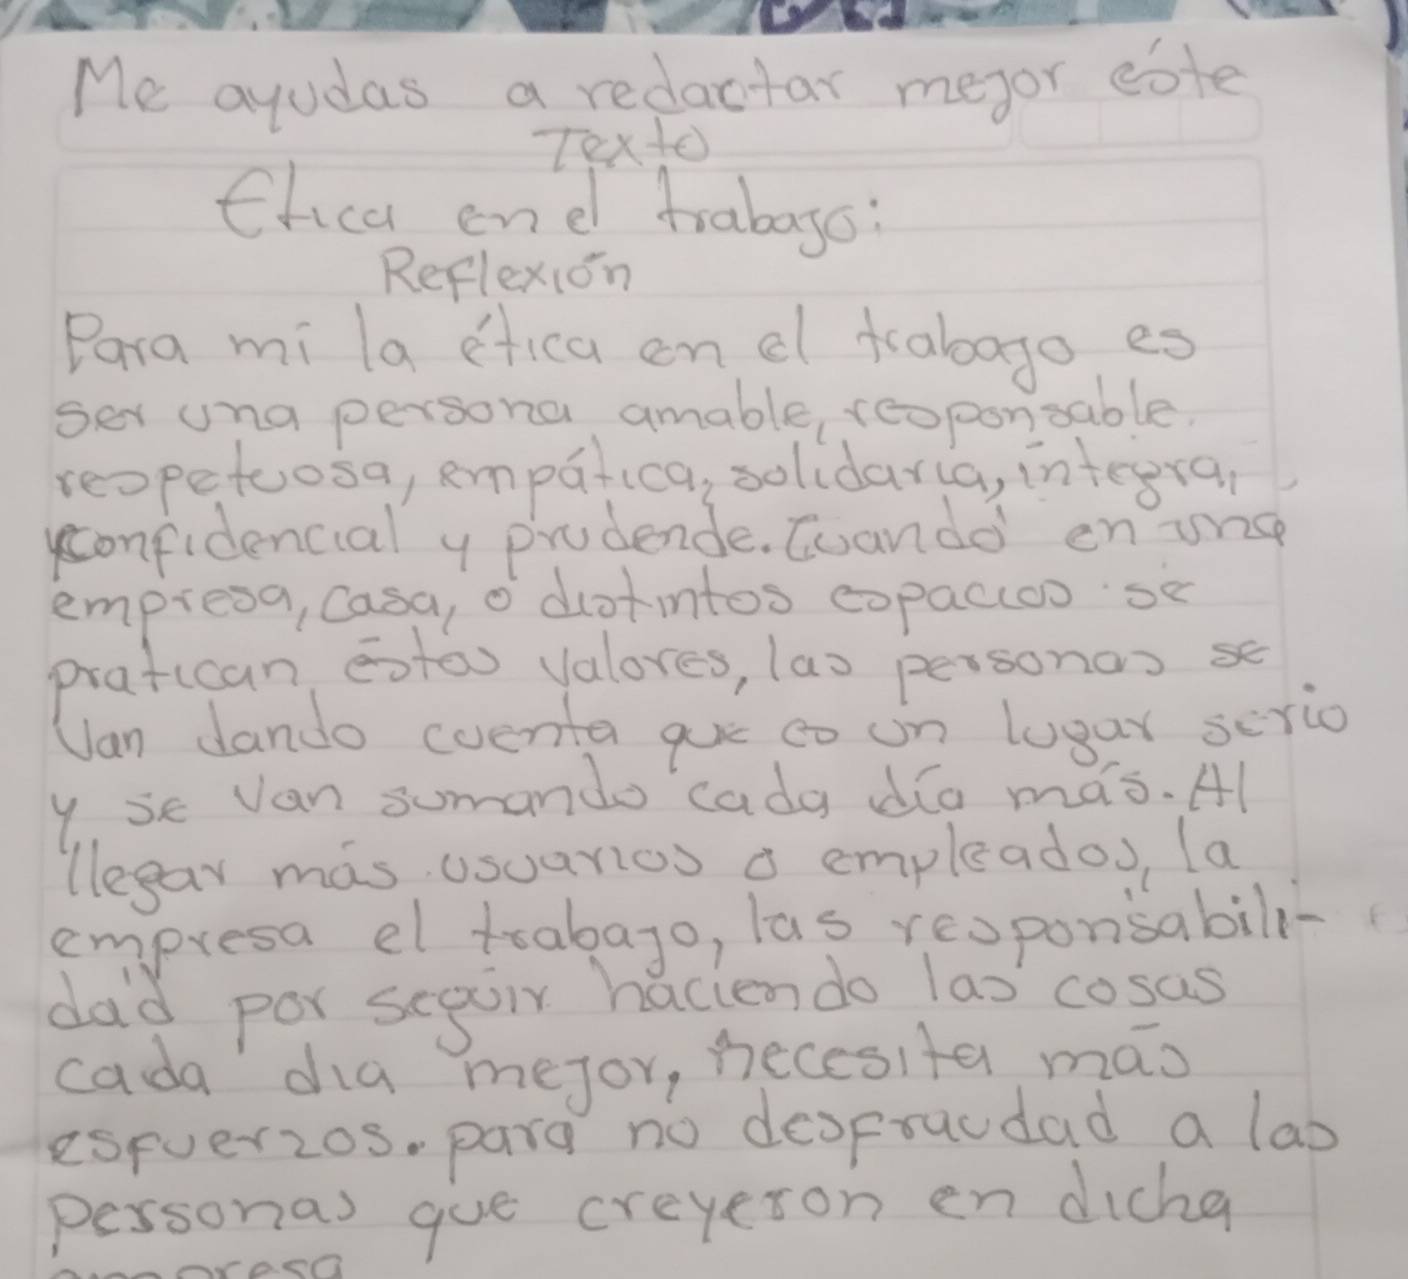 Me ayudas a redactar mejor éste
Texto
Etica en el trabajo:
Reflexión
Para mi la ética en el trabajo es
ser una persona amable, responsable.
respetuosa, empática, solidaria, integra,
confidencial y prudende. Cuando en una
empresa, casa, o distintos espacios se
pratican éstos valores, las personas se
Van dando cuenta que es un lugar serio
y se van sumando cada día más. Al
llegar más usuarios o empleados, la
empresa el trabajo, las responsabili-
dad por seguir haciendo las cosas
cada dia mejor, necesita más
esfuerzos. para no desfraudad a las
personas que creyeron en dicha
empresa